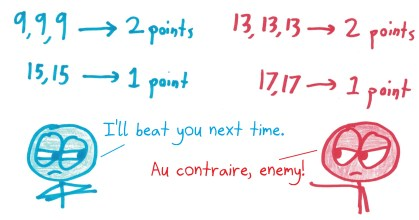 9,9,9 → 2 points
13,13,13 → 2 points
15,15 → 1 point
17,17 → 1 point
I'll beat you next time.
Au contraire, enemy!